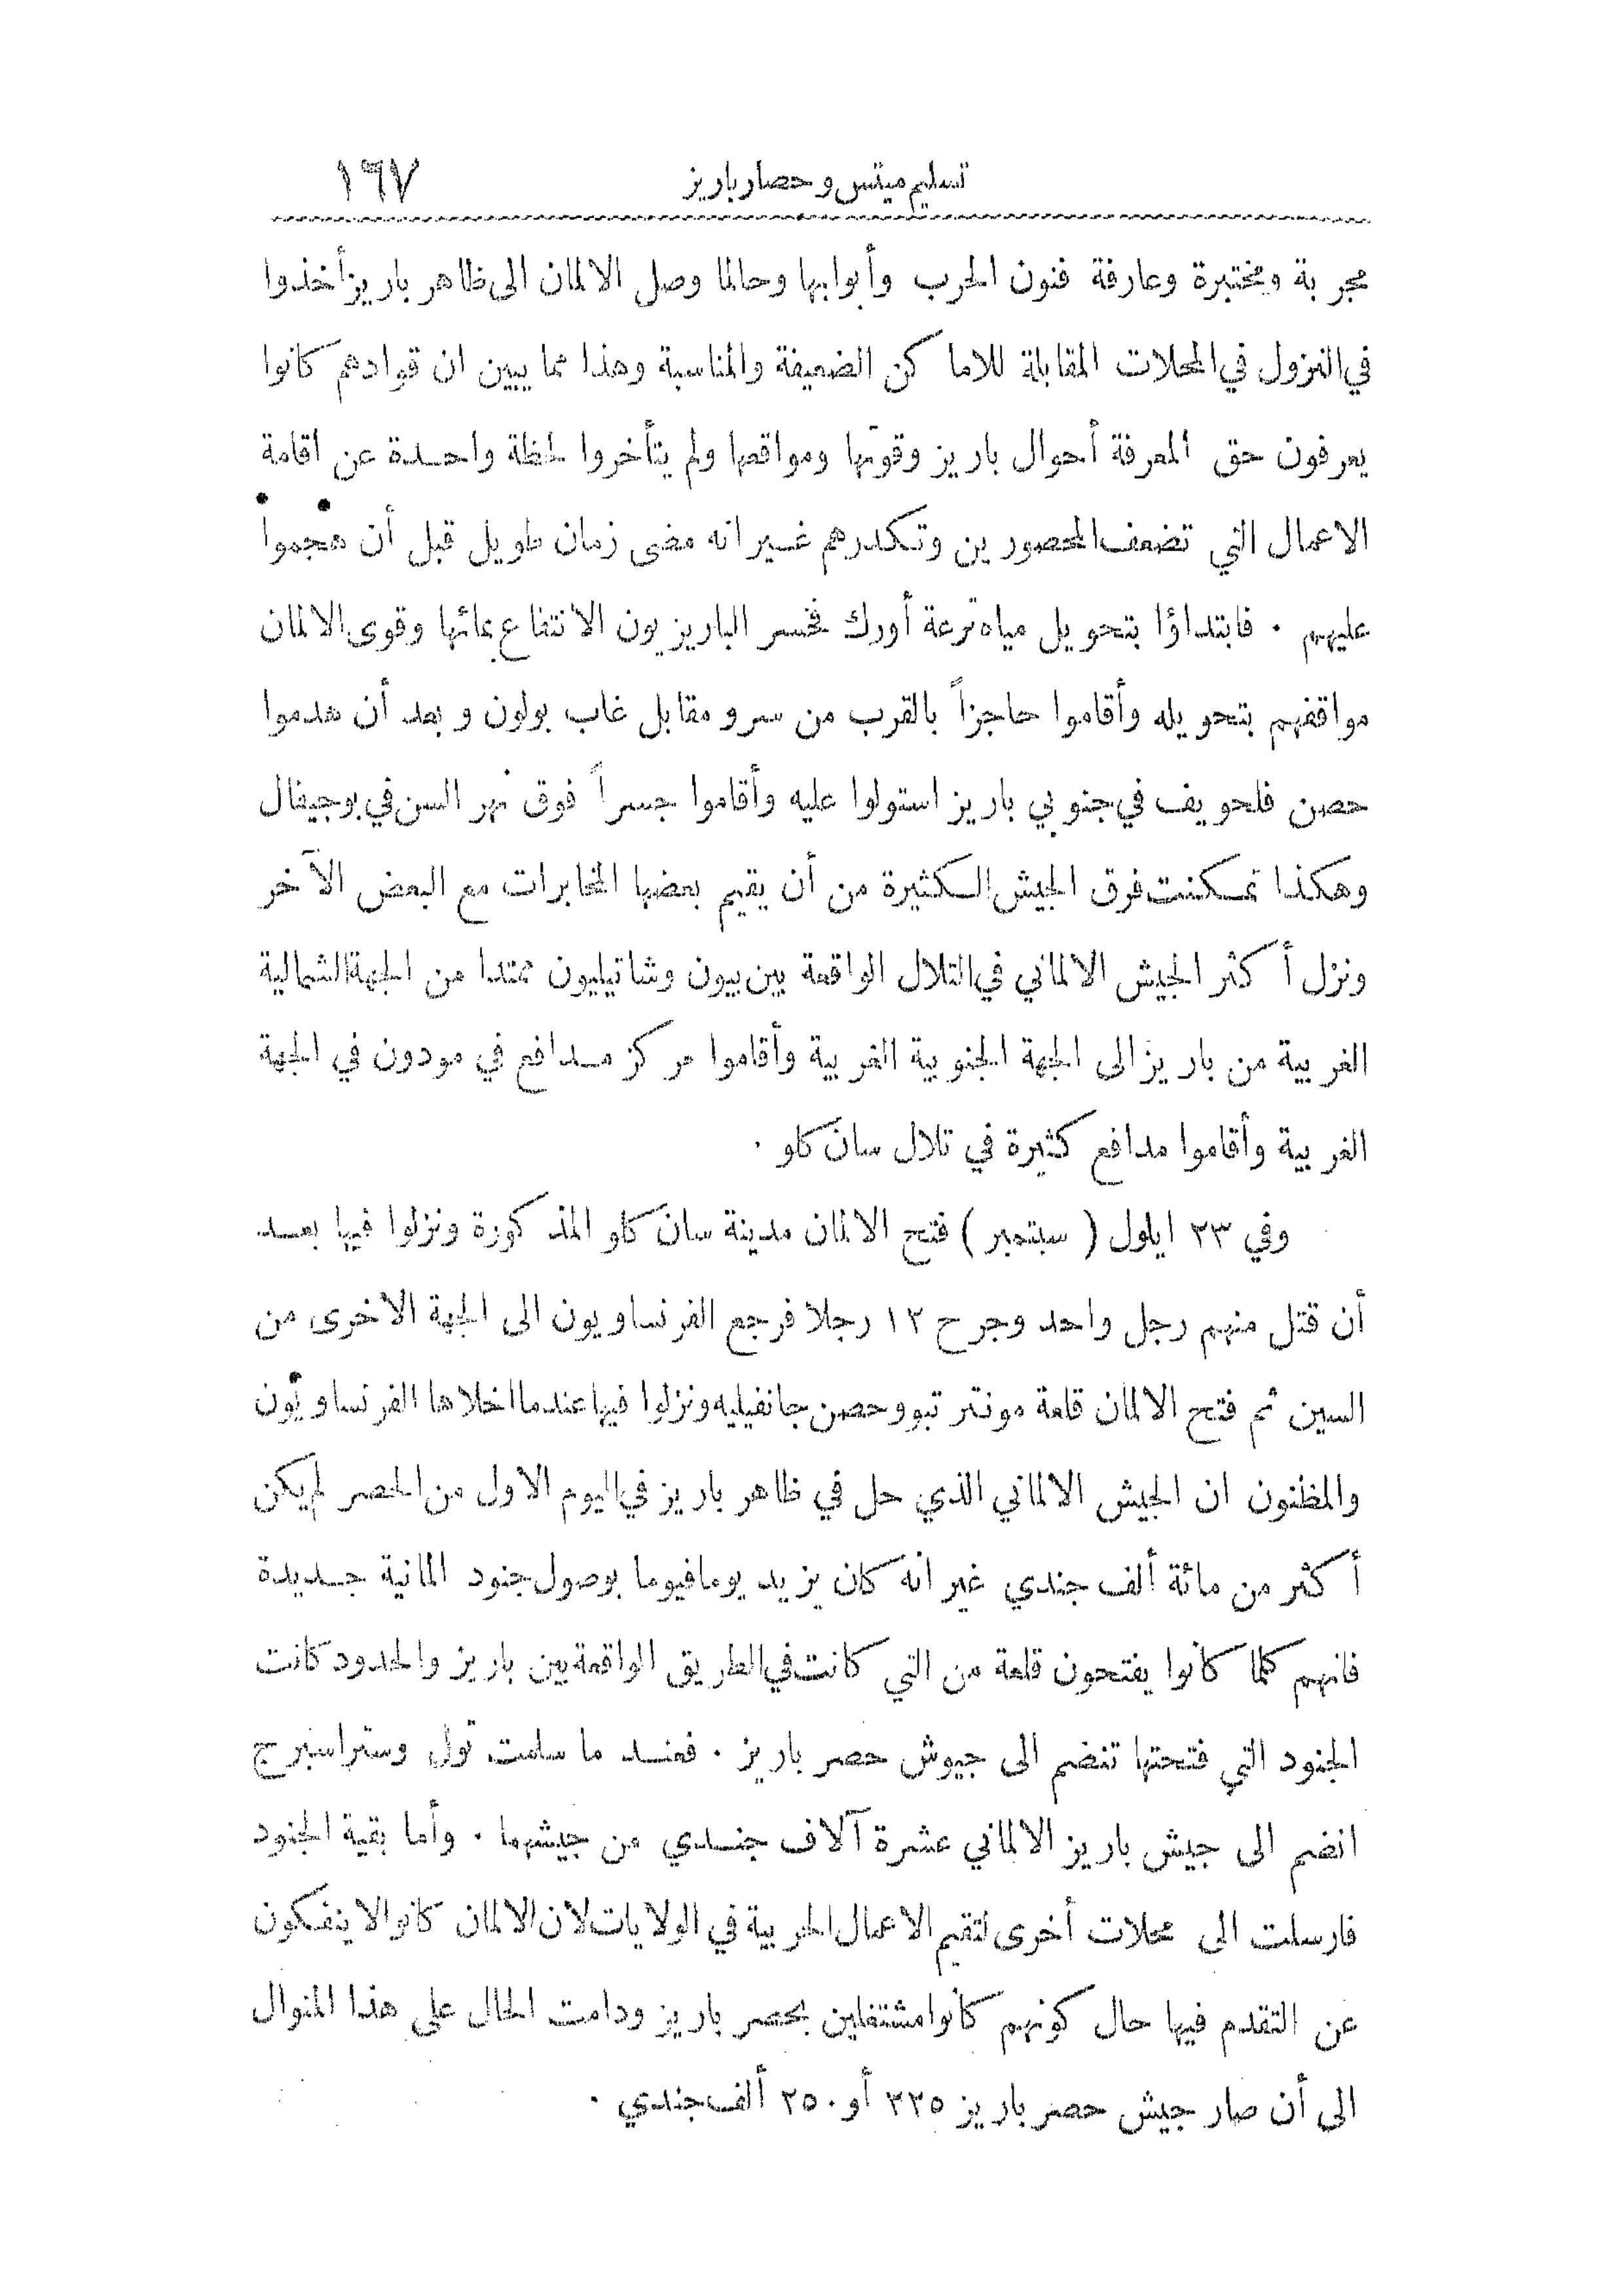 تسليم ميتس وحصار باريز ١٦٧
مجربة ومختبرة وعارفة فنون الحرب وأبوابها وحالما وصل الالمان الى ظاهر باريز أخذوا
في النزول في المحلات المقابلة للاماكن الضعيفة والمناسبة وهذا مما يبين ان قوادهم كانوا
يعرفون حق المعرفة أحوال باريز وقوتها ومواقعها ولم يتأخروا لحظة واحدة عن اقامة
الاعمال التي تضعف المحصورين وتكدرهم غير انه مضى زمان طويل قبل أن هجموا
عليهم . فابتداؤا بتحويل مياه ترعة أورك فخسر الباريزيون الانتفاع بمائها وقوى الالمان
مواقفهم بتحويله وأقاموا حاجزاً بالقرب من سرو مقابل غاب بولون وبعد أن هدموا
حصن فلحويف في جنوبي باريز استولوا عليه وأقاموا جسراً فوق نهر السن في بوجيفال
وهكذا تمكنت فرق الجيش الكثيرة من أن يقيم بعضها المخابرات مع البعض الآخر
ونزل أكثر الجيش الالماني في التلال الواقعة بين بيون وشاتيليون ممتدا من الجهة الشمالية
الغربية من باريز الى الجهة الجنوبية الغربية وأقاموا مركز مدافع في مودون في الجهة
الغربية وأقاموا مدافع كثيرة في تلال سان كلو .
وفي ٢٣ ايلول ( سبتمبر ) فتح الالمان مدينة سان كلو المذكورة ونزلوا فيها بعد
أن قتل منهم رجل واحد وجرح ١٢ رجلا فرجع الفرنساويون الى الجهة الاخرى من
السين ثم فتح الالمان قلعة مونتر تبو وحصن جانفيليه ونزلوا فيها عندما اخلاها الفرنساويون
والمظنون ان الجيش الالماني الذي حل في ظاهر باريز في اليوم الاول من الحصر لم يكن
أكثر من مائة ألف جندي غير انه كان يزيد يوما فيوما بوصول جنود المانية جديدة
فانهم كلما كانوا يفتحون قلعة من التي كانت في الطريق الواقعة بين باريز والحدود كانت
الجنود التي فتحتها تنضم الى جيوش حصر باريز . فعند ما سلمت تول وستراسبرج
انضم الى جيش باريز الالماني عشرة آلاف جندي من جيشهما . وأما بقية الجنود
فارسلت الى محلات أخرى لتقيم الاعمال الحربية في الولايات لان الالمان كانوا لا ينفكون
عن التقدم فيها حال كونهم كانوا مشتغلين بحصر باريز ودامت الحال على هذا المنوال
الى أن صار جيش حصر باريز ٢٢٥ أو ٢٥٠ ألف جندي .